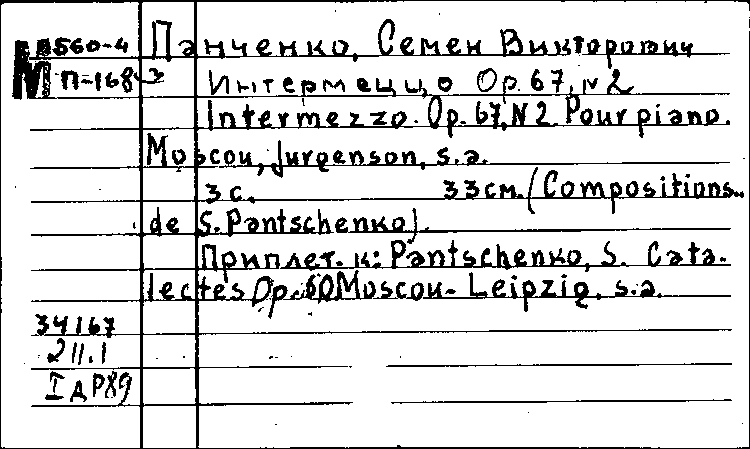 В560-4 Панченко, Семен Викторович
М П-168 Интермеццо Op. 67, N 2
Intermezzo. Op. 67, N 2. Pour piano.
Moscou, Jurgenson, s.a.
3 с. 33 см. (Compositions..
de S. Pantschenko).
Приплет. к: Pantschenko, S. Cata-
lectes Op. 60 Moscou - Leipzig, s.a.
34167
211.1
I д Р89